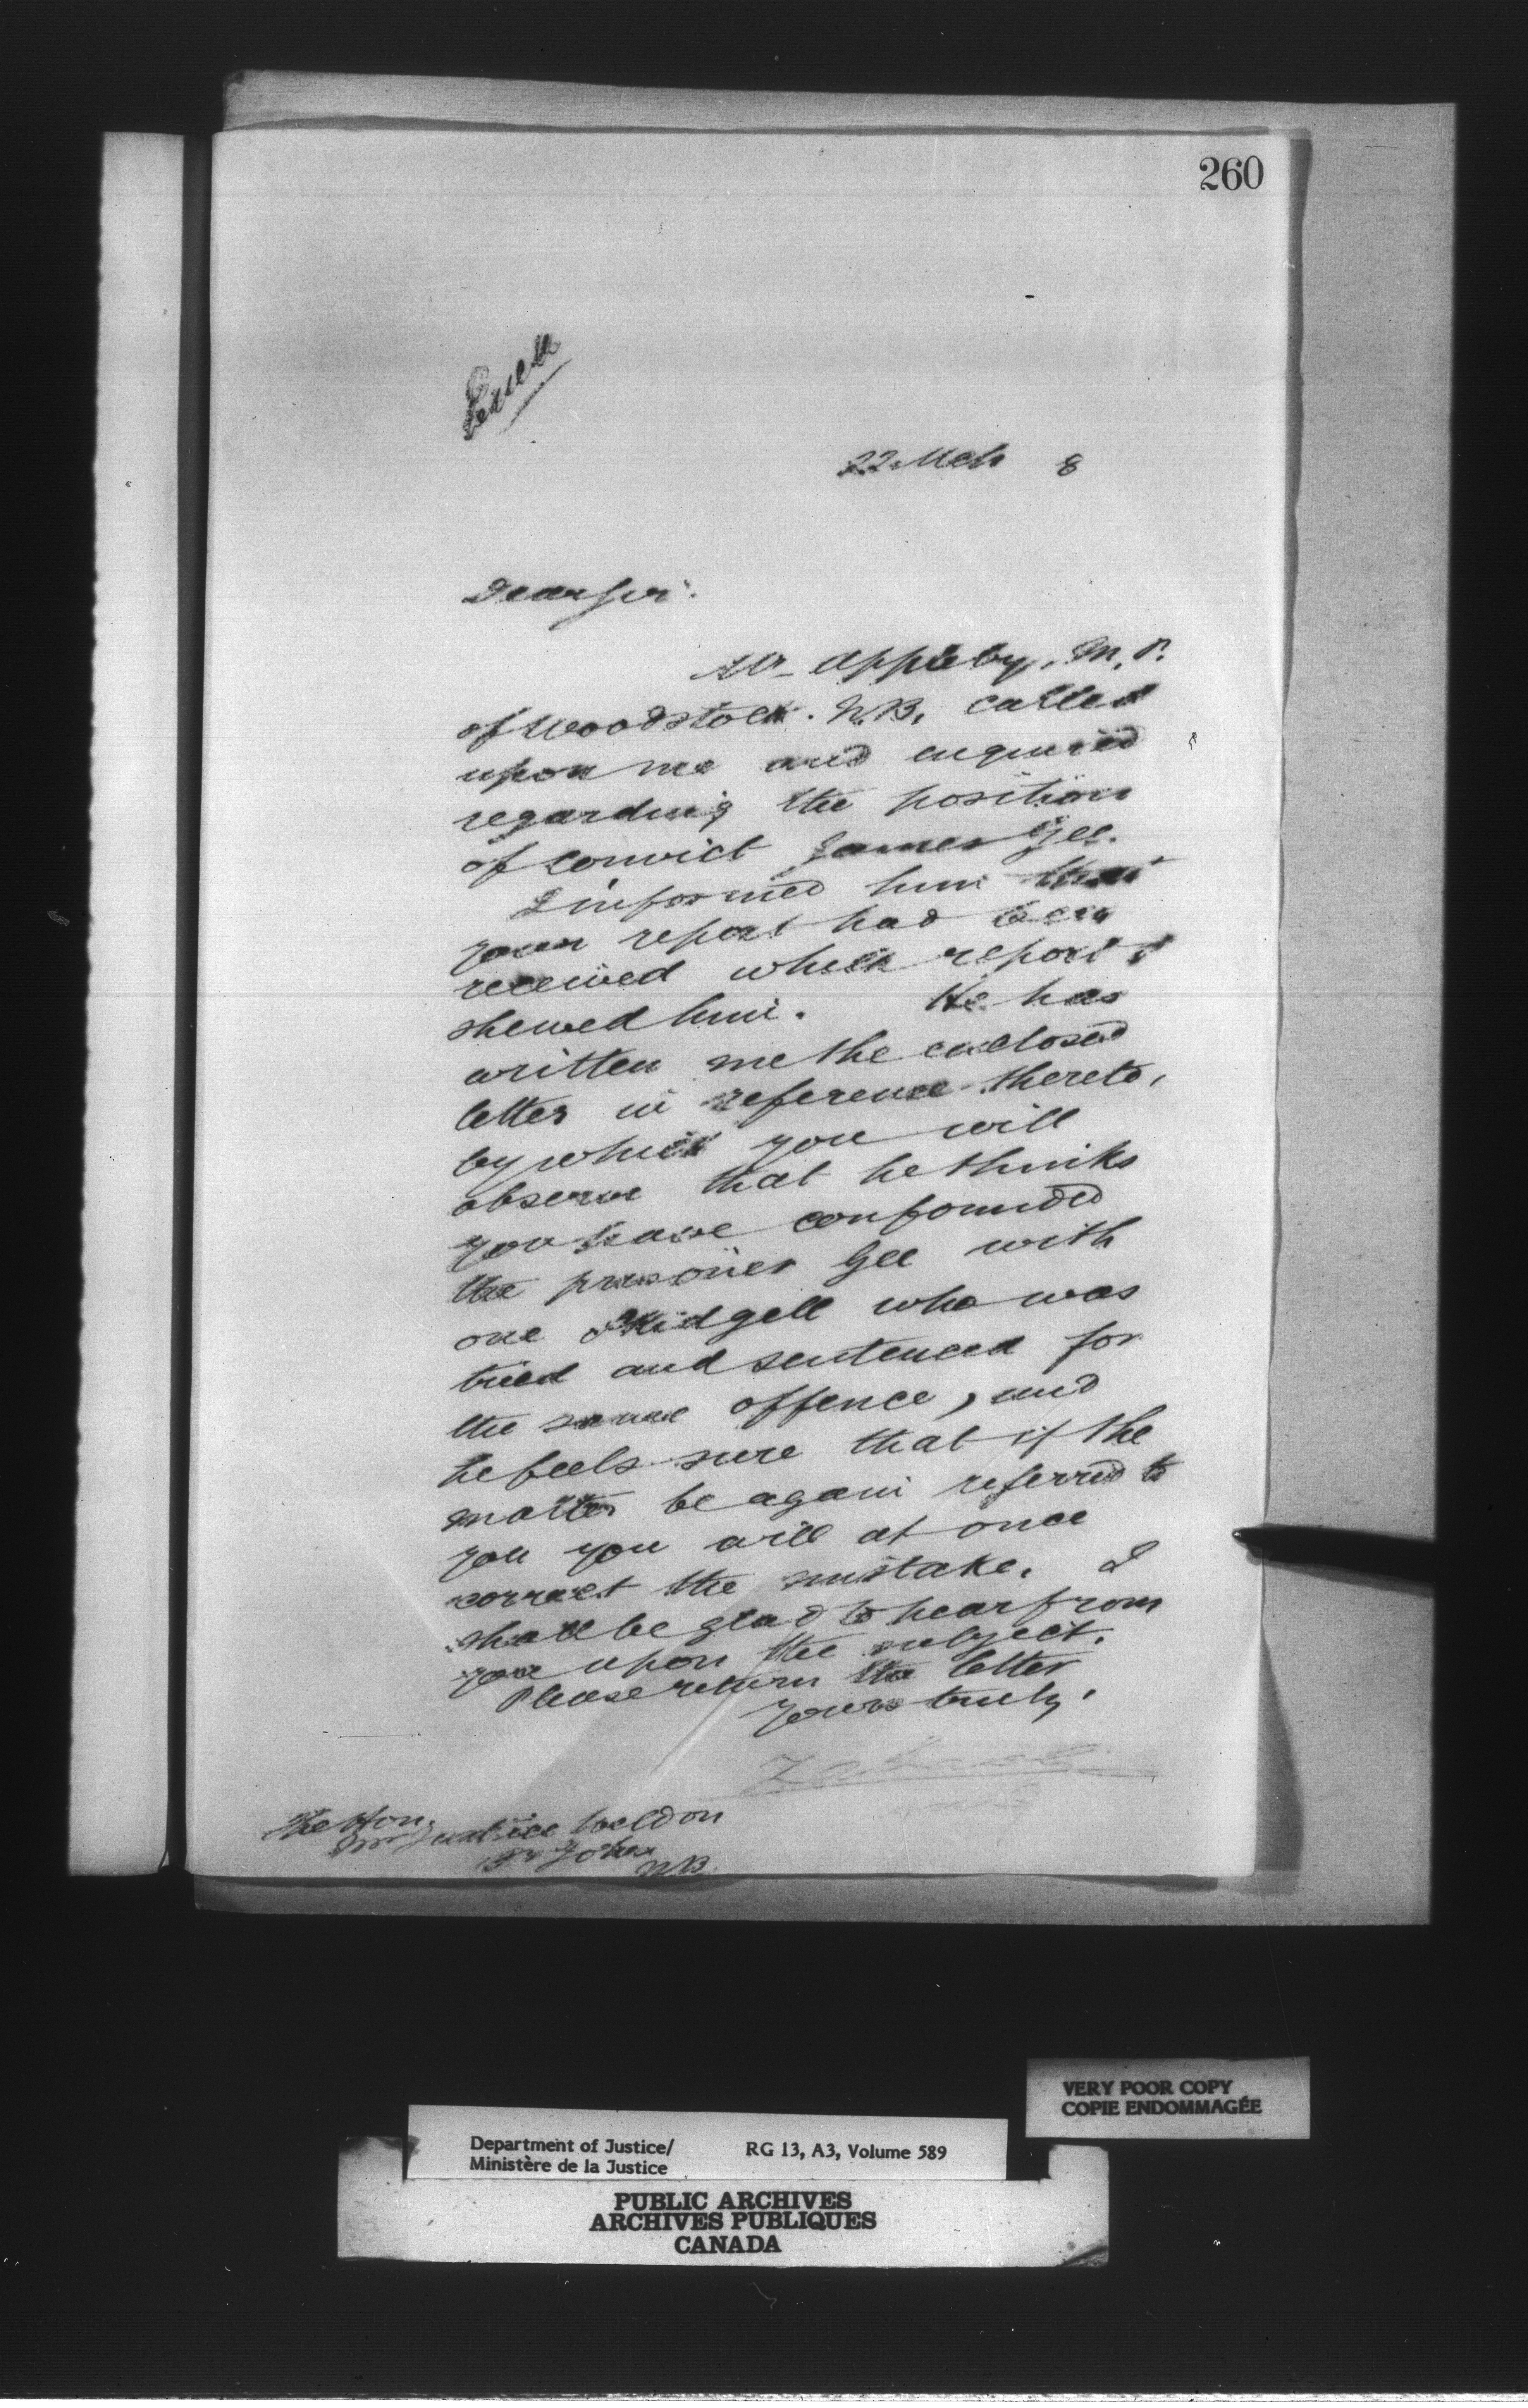 260
22 Mch 8
Dear Sir.
Mr Appleby, M.P.
of Woodstock. N.B. called
upon me and enquired
regarding the position
of convict James Gee.
I informed him that
your report had been
received which report I
shewed him. He has
written me the enclosed
letter in reference thereto,
by which you will
observe that he thinks
you have confounded
the prisoner Gee with
one Skidgell who was
tried and sentenced for
the same offence, and
he feels sure that if the
matter be again referred to
you you will at once
correct the mistake. I
shall be glad to hear from
you upon the subject.
Please return the letter
Yours truly,
The Hon.
Mr Justice Weldon
St John
N.B.
VERY POOR COPY
COPIE ENDOMMAGÉE
Department of Justice/ RG 13, A3, Volume 589
Ministère de la Justice
PUBLIC ARCHIVES
ARCHIVES PUBLIQUES
CANADA